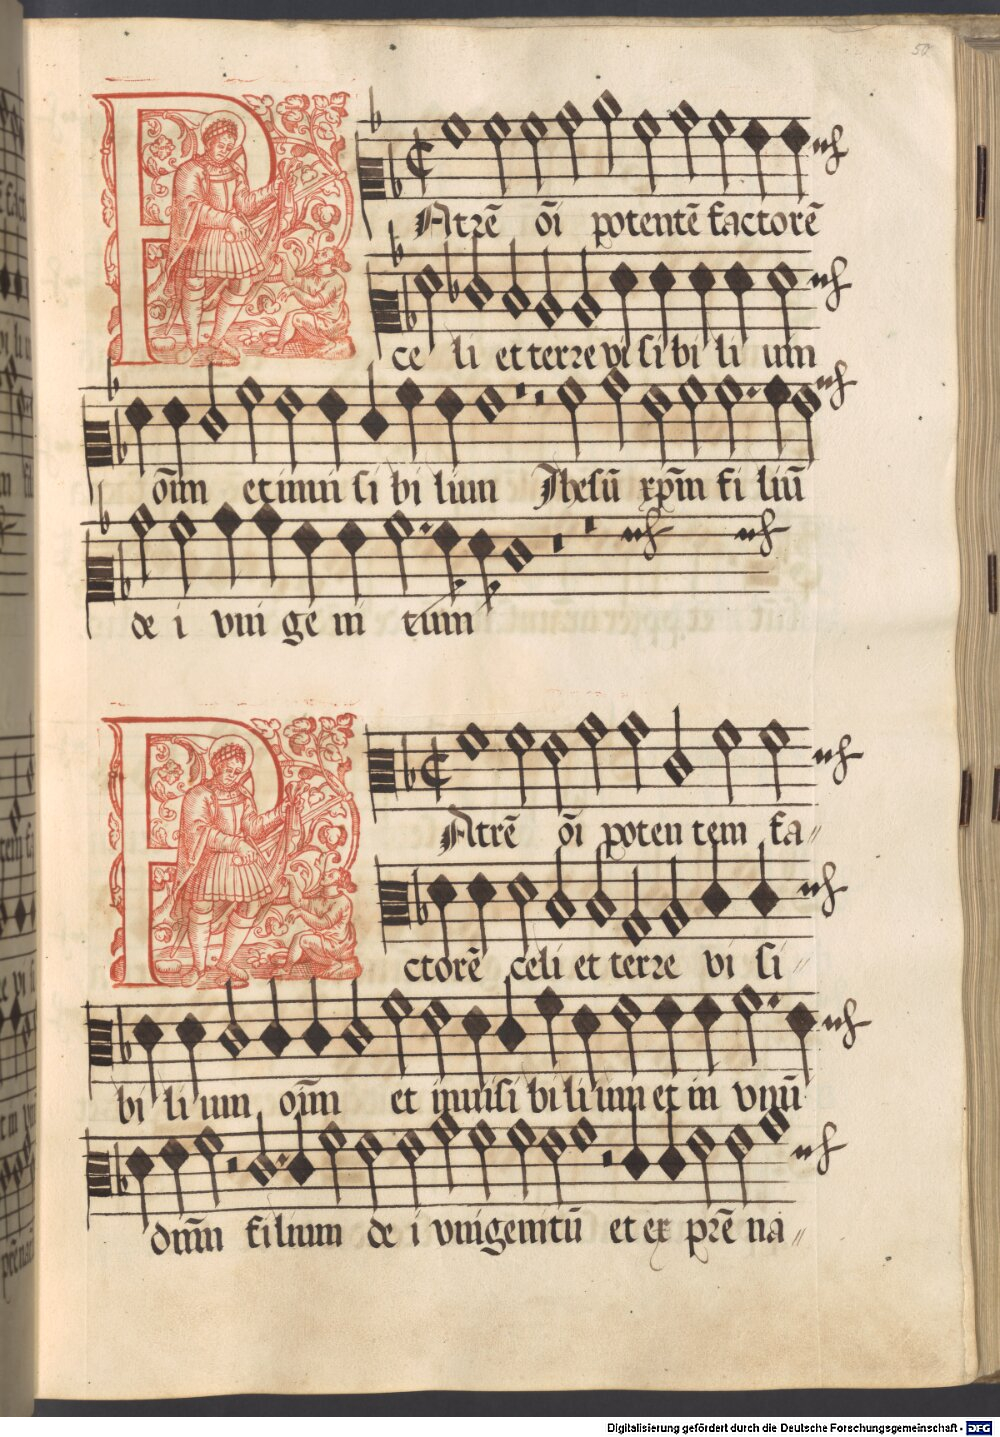 50
PAtrē oī potentē factorē
ce li et terre vi si bi li um
oīm et invi si bi lium Jhesū xp̄m fi liū
de i vni ge ni tum
PAtrē oī poten tem fa〃
ctorē celi et terre vi si〃
bi li um oīm et invisi bi li um et in vnū
dn̄m filium de i vnigenitū et ex pr̄e na〃
Digitalisierung gefördert durch die Deutsche Forschungsgemeinschaft - DFG